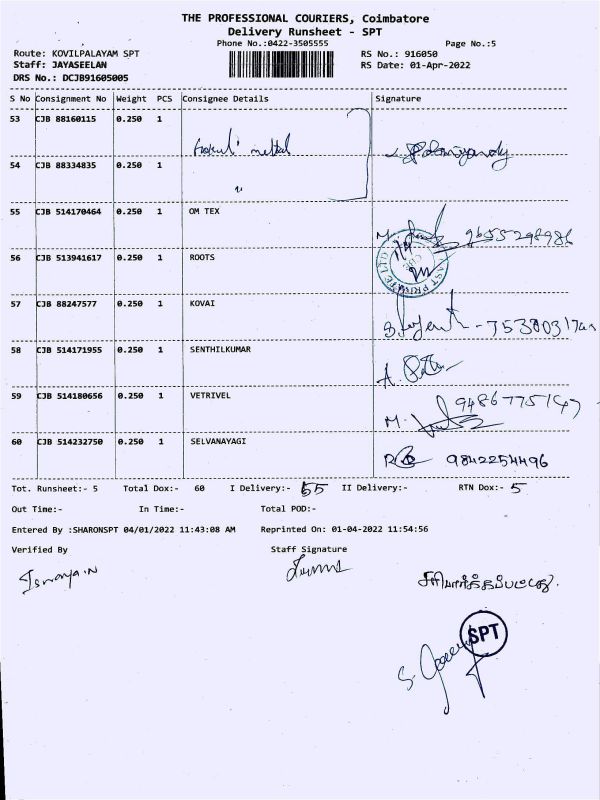 THE PROFESSIONAL COURIERS, Coimbatore
Delivery Runsheet - SPT
Phone No.:0422-3505555 Page No.:5
Route: KOVILPALAYAM SPT RS No.: 916050
Staff: JAYASEELAN RS Date: 01-Apr-2022
DRS No.: DCJB91605005
S No Consignment No Weight PCS Consignee Details Signature
53 CJB 88160115 0.250 1
54 CJB 88334835 0.250 1 "
55 CJB 514170464 0.250 1 OM TEX M. 9655298986
56 CJB 513941617 0.250 1 ROOTS
57 CJB 88247577 0.250 1 KOVAI
58 CJB 514171955 0.250 1 SENTHILKUMAR A.
59 CJB 514180656 0.250 1 VETRIVEL M. 9486775147
60 CJB 514232750 0.250 1 SELVANAYAGI 9842254496
Tot. Runsheet:- 5 Total Dox:- 60 I Delivery:- 55 II Delivery:- RTN Dox:- 5
Out Time:- In Time:- Total POD:-
Entered By :SHARONSPT 04/01/2022 11:43:08 AM Reprinted On: 01-04-2022 11:54:56
Verified By Staff Signature
சரிபார்க்கப்பட்டது.
SPT